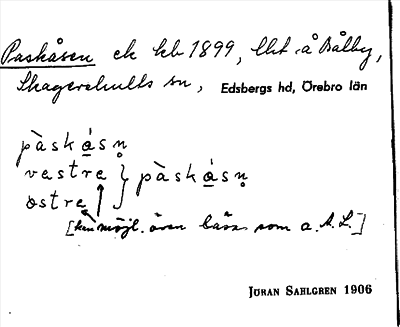 Paskåsen ek kb 1899, Ekt. å Bålby,
Skagershults sn, Edsbergs hd, Örebro län
pàskásn̥
vastra } pàskásn̥
ostra
[kan möjl. även läsas som a. A.L.]
JÖRAN SAHLGREN 1906